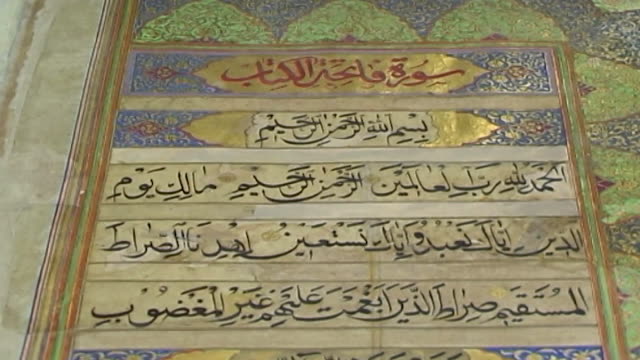 سورة فاتحة الكتاب
بِسْمِ اللهِ الرَّحْمٰنِ الرَّحِيْمِ
اَلْحَمْدُ لِلّٰهِ رَبِّ الْعَالَمِيْنَ الرَّحْمٰنِ الرَّحِيْمِ مَالِكِ يَوْمِ
الدِّيْنِ اِيَّاكَ نَعْبُدُ وَاِيَّاكَ نَسْتَعِيْنُ اِهْدِنَا الصِّرَاطَ
الْمُسْتَقِيْمَ صِرَاطَ الَّذِيْنَ اَنْعَمْتَ عَلَيْهِمْ غَيْرِ الْمَغْضُوْبِ